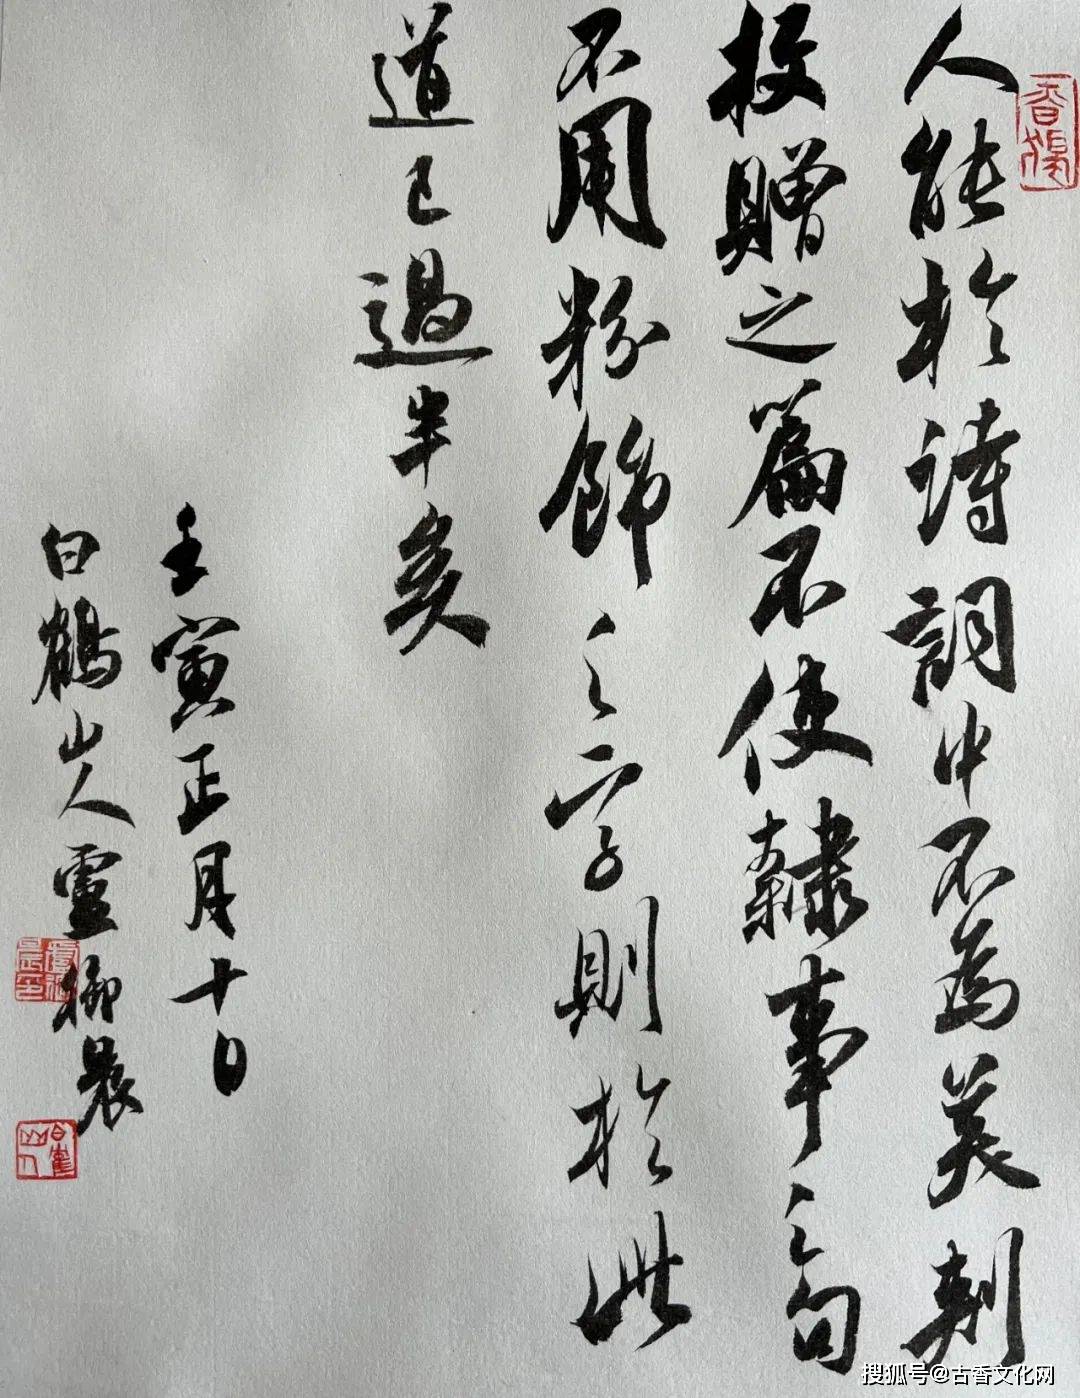 人能於詩詞中不為美刺
投贈之篇不使隸事之句
不用粉飾之字則於此
道已過半矣
壬寅正月十日
白鶴山人靈御晨
搜狐号@古香文化网